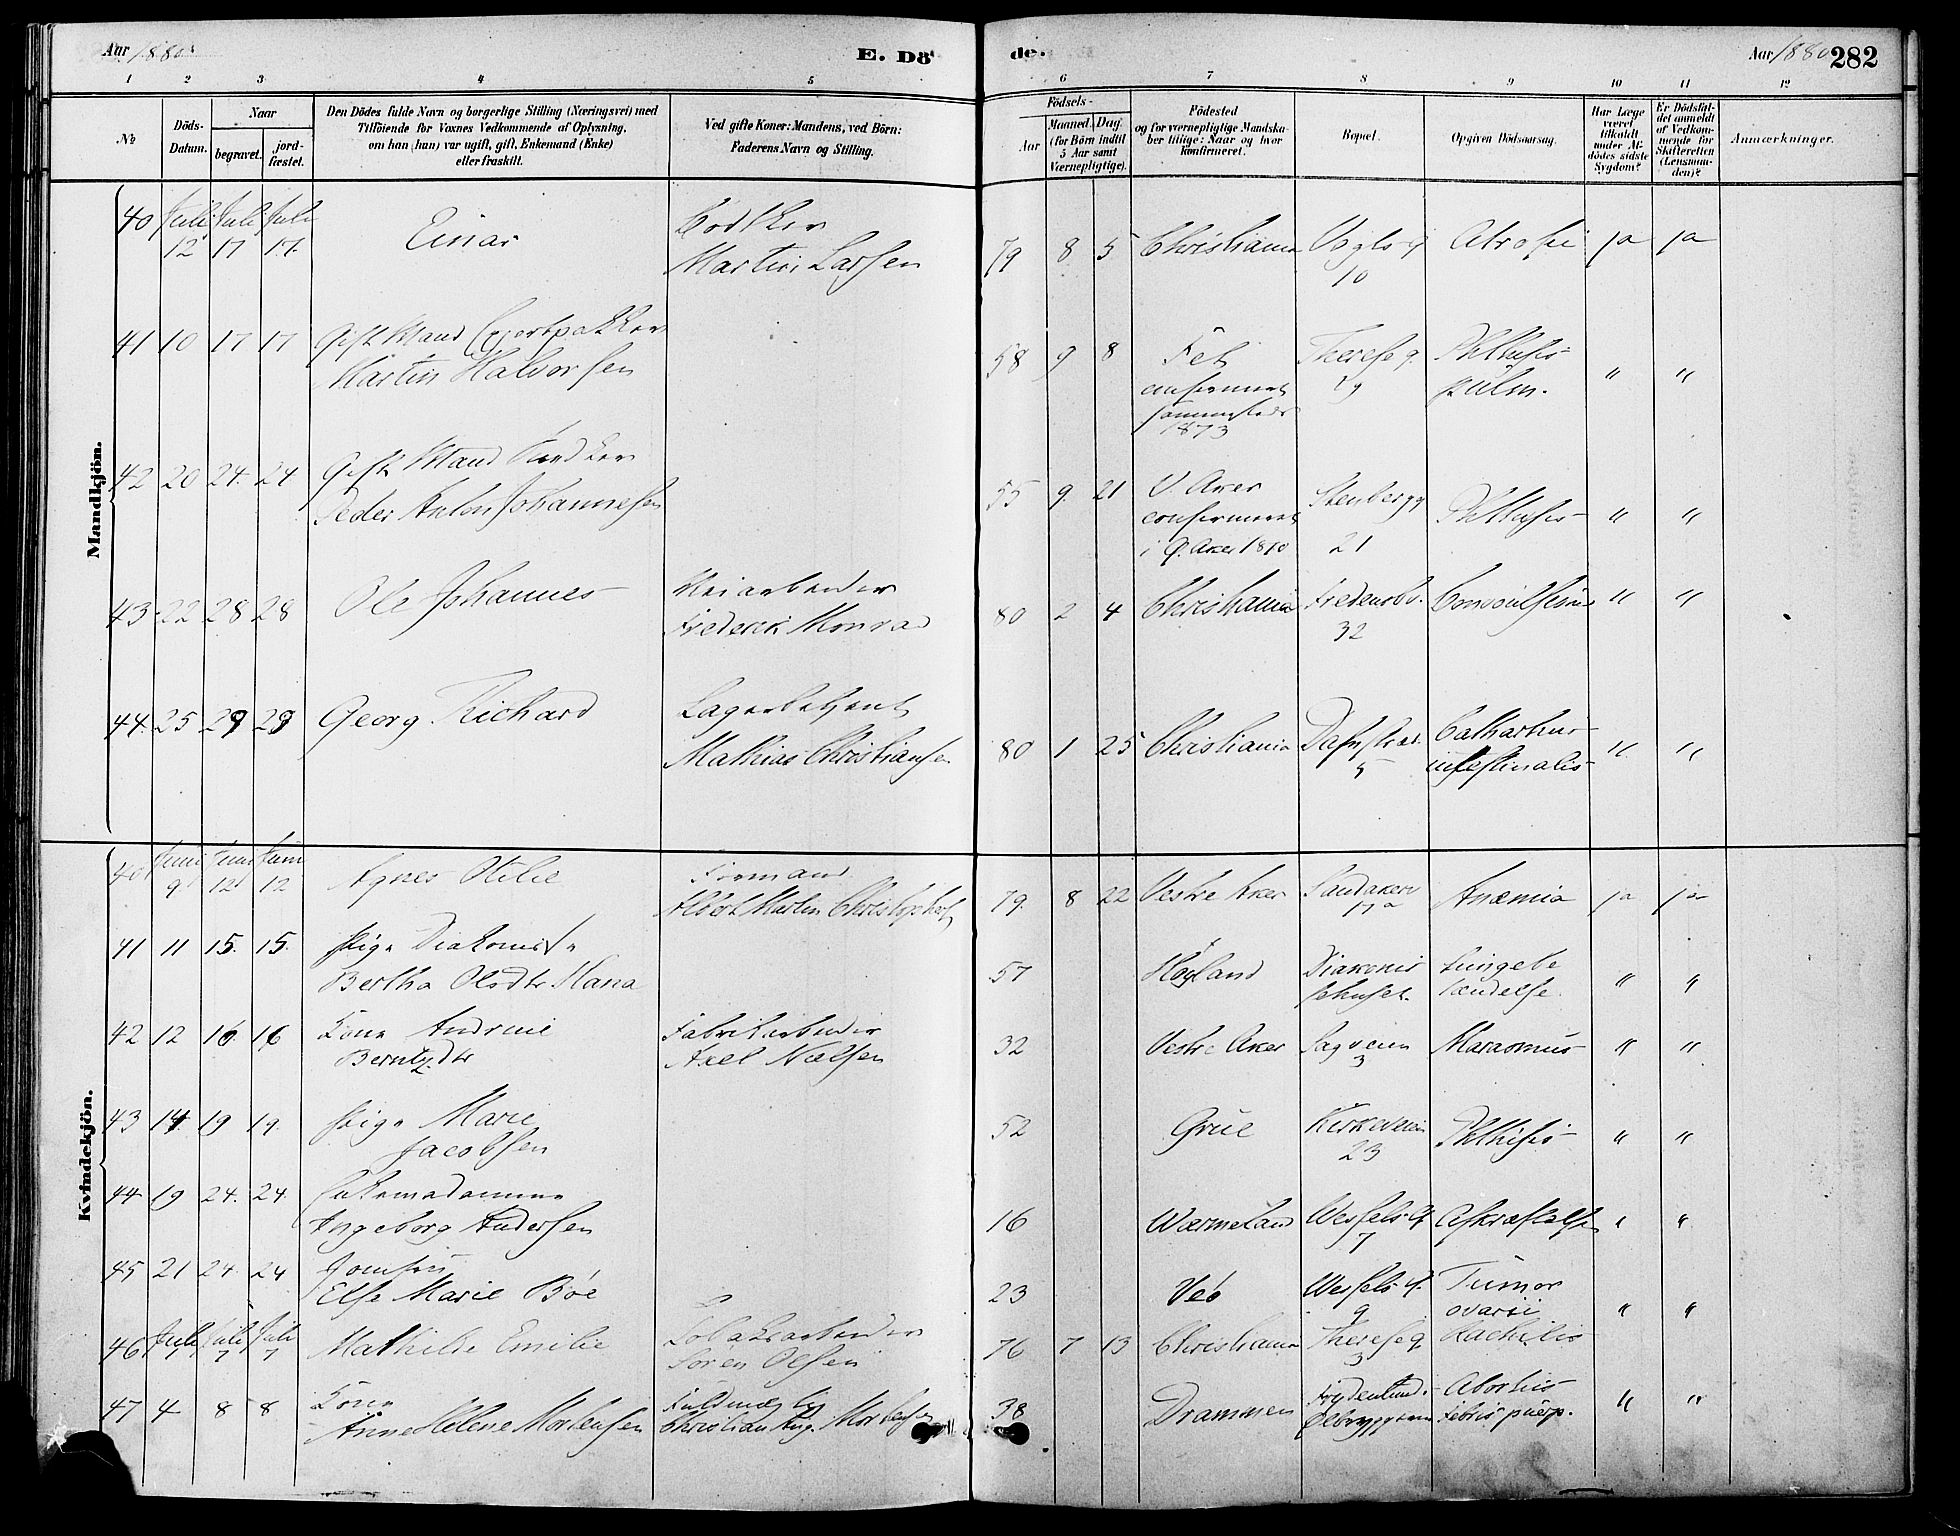 Aar 1880.
E. Dö
de.
Aar 1880
282
1 2 3 4 5 6 7 8 9 10 11 12
№
Döds-
Datum.
Naar
begravet.
jord-
fæstet.
Den Dödes fulde Navn og borgerlige Stilling (Næringsvei) med
Tilföiende for Voxnes Vedkommende af Oplysning,
om han (hun) var ugift, gift, Enkemand (Enke)
eller fraskilt.
Ved gifte Koner: Mandens, ved Börn:
Faderens Navn og Stilling.
Födsels-
Aar
Maaned. Dag.
(for Börn indtil
5 Aar samt
Værnepligtige).
Födested
og for værnepligtige Mandska-
ber tillige: Naar og hvor
konfirmeret.
Bopæl.
Opgiven Dödsaarsag.
Har Læge
været
tilkaldt
under Af-
dödes sidste
Sygdom?
Er Dödsfal-
det anmeldt
af Vedkom-
mende for
Skifteretten
(Lensman-
den)?
Anmærkninger.
Mandkjön.
40 Juli 12 Juli 17 Juli 17. Einar
Martin Larsen
79 8 5 Christiania 10 Atrofi ja ja
41 10 17 17 Gift Mand
Martin Halvorsen
58 9 8 Fet
confirmeret
sammesteds
1873
Therese g.
Phthisis
pulm. " "
42 20 24. 24 Gift Mand
Peder Anton Johannesen
55 9. 21 V. Aker
confirmeret
i V. Aker
Stenberg g
21
Phthisis " "
43 22 28 28 Ole Johannes
Frederik Monrad
80 2 4 Christiania 32 Convulsions " "
44. 25 29 29 Georg Richard
Lagerbetjent
Mathias Christiansen
80 1 25 Christiania 5
Catharhus
intestinalis " "
Kvindekjön.
40 Juni 9 Juni 12 Juni 12 Agnes Otilie
Formand
Albert Martin Christophers
79. 8 22 Vestre Aker Sandakerv
17a
Anæmia ja ja
41 11 15. 15. Pige Diakonisse
Bertha Olsdtr Hana
57 Høyland Diakonis
sehuset.
Lungebe
tændelse. " "
42 12 16. 16 Kone Andrine
Berntzdtr
Fabrikarbeider
Axel Nielsen
32 Vestre Aker Sagveien
3
Marasmus " "
43 14. 19 19. Pige Marie
Jacobsen
52 Grue Kirkeveien
23
Phthisis " "
44 19 24. 24. Enkemadamme
Ingeborg Andersen
16 Wærmeland Wessels g
7
Afkræftelse " "
45 21 24. 24 Jomfru
Else Marie Böe
23 Veö Wessels g.
9
Tumor
ovarii " "
46 Juli 1 Juli 7 Juli 7 Mathilde Emilie
Tobaksarbeider
Sören Olsen
76 7 13 Christiania Therese g
3
Rachitis
47 4 8 8 Kone
Anne Helene Mortensen
Fuldmægtig
Christian Aug. Mortensen
38 Drammen Frydenlunds
Ølbryggeri
Abortus
Febris puerp. " "